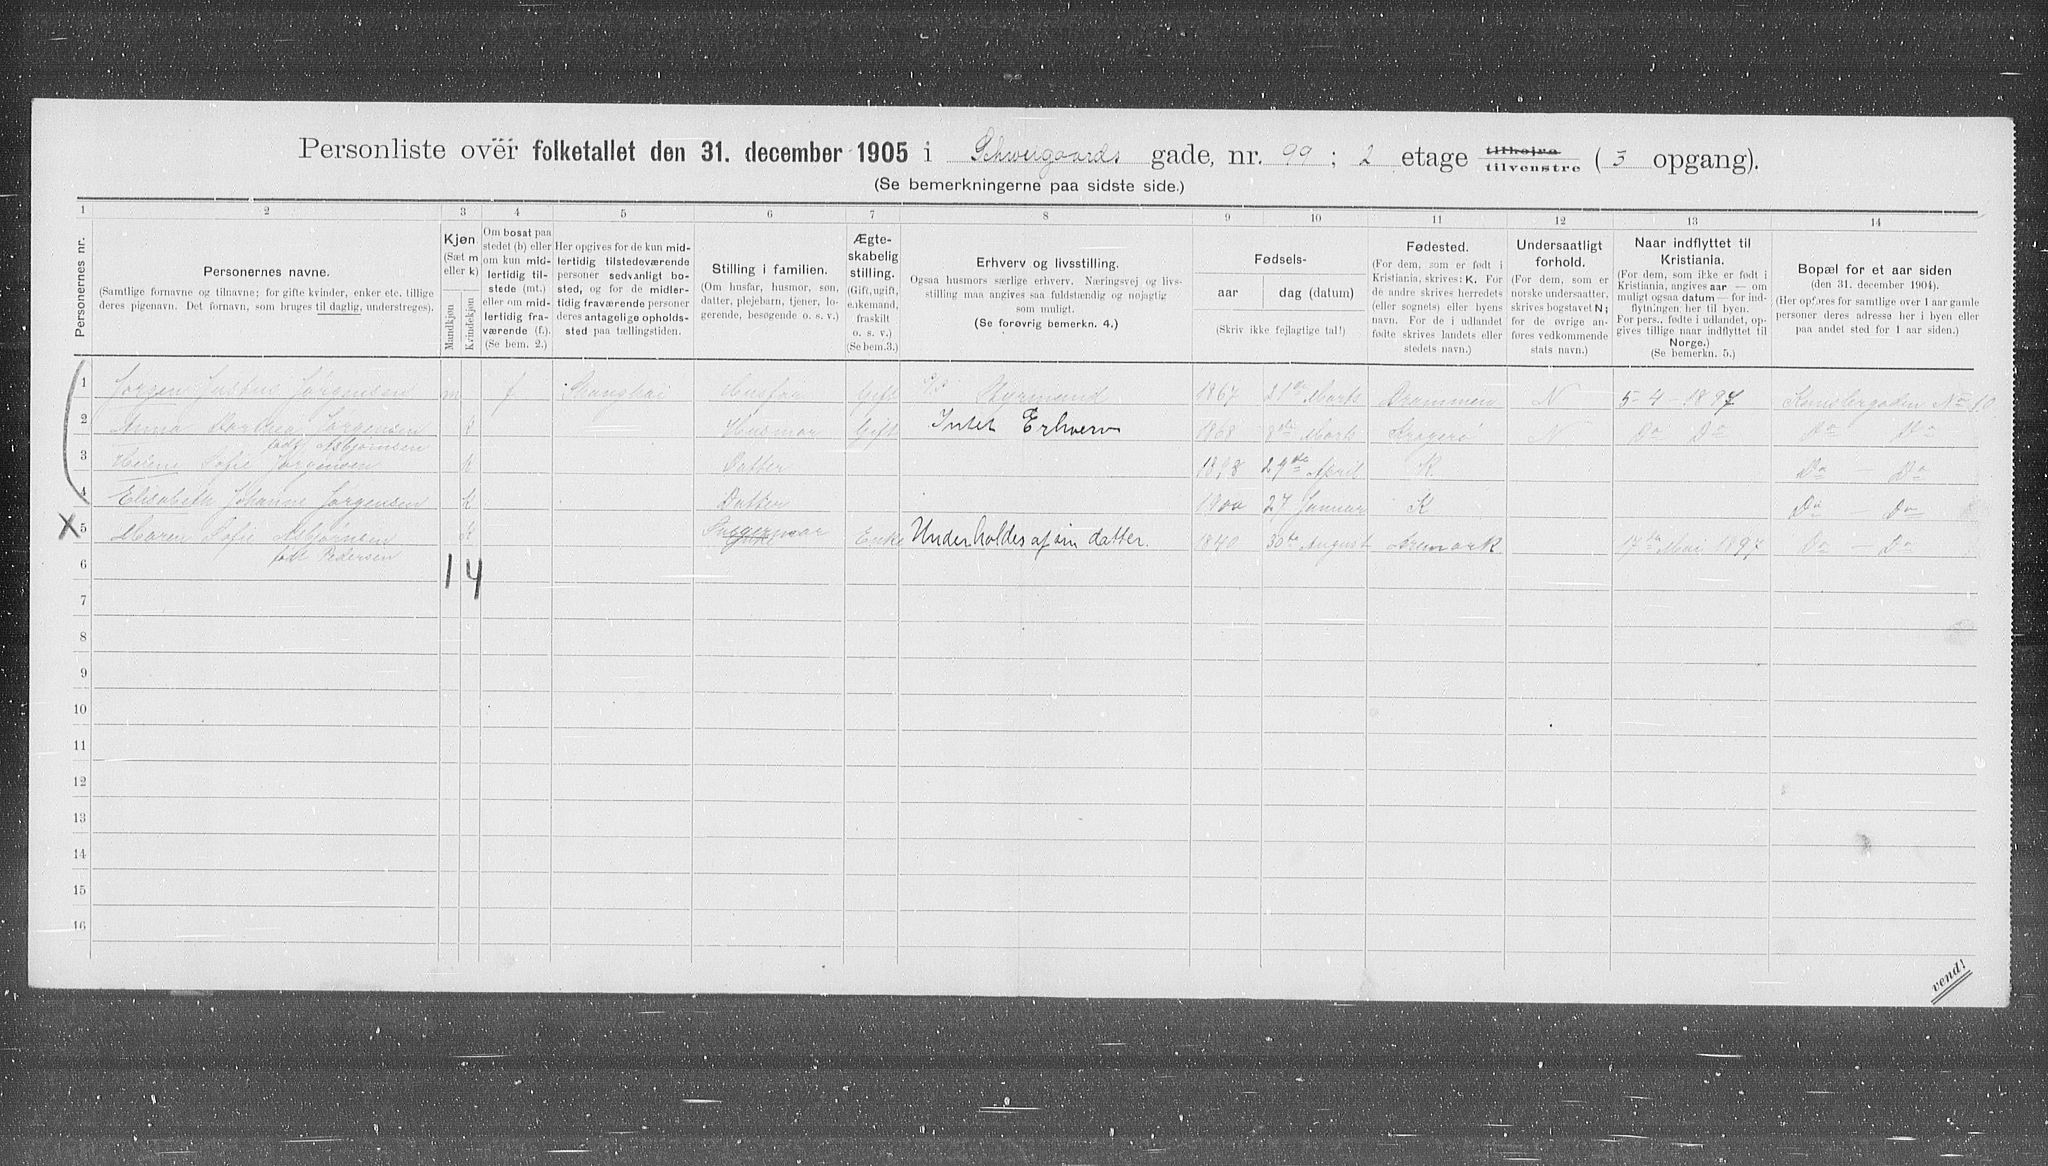 Personliste over folketallet den 31. december 1905 i Schweigaards gade, nr. 99 ; 2 etage tilhøjre tilvenstre ( 3 opgang).
(Se bemerkningerne paa sidste side.)
1 2 3 4 5 6 7 8 9 10 11 12 13 14
Personernes nr.
Personernes navne.
(Samtlige fornavne og tilnavne; for gifte kvinder, enker etc. tillige
deres pigenavn. Det fornavn, som bruges til daglig, understreges).
Kjøn.
(Sæt m
eller k)
Mandkjøn
Kvindekjøn
Om bosat paa
stedet (b) eller
om kun mid-
lertidig til-
stede (mt.)
eller om mid-
lertidig fra-
værende (f.).
(Se bem. 2.)
Her opgives for de kun mid-
lertidig tilstedeværende
personer sedvanligt bo-
sted, og for de midler-
tidig fraværende personer
deres antagelige opholds-
sted paa tællingstiden.
Stilling i familien.
(Om husfar, husmor, søn,
datter, plejebarn, tjener, lo-
gerende, besøgende o. s. v.)
Ægte-
skabelig
stilling.
(Gift, ugift,
enkemand,
fraskilt
o. s. v.)
(Se bem. 3.)
Erhverv og livsstilling.
Ogsaa husmors særlige erhverv. Næringsvej og livs-
stilling maa angives saa fuldstændig og nøjagtig
som muligt.
(Se forøvrig bemerkn. 4.)
Fødsels-
aar
dag (datum)
(Skriv ikke fejlagtige tal!)
Fødested.
(For dem, som er født i
Kristiania, skrives: K. For
de andre skrives herredets
(eller sognets) eller byens
navn. For de i udlandet
fødte skrives landets eller
stedets navn.)
Undersaatligt
forhold.
(For dem, som er
norske undersaatter,
skrives bogstavet N;
for de øvrige an-
føres vedkommende
stats navn.)
Naar indflyttet til
Kristiania.
(For dem, som ikke er født i
Kristiania, angives aar — om
muligt ogsaa datum — for ind-
flytningen her til byen.
For pers., fødte i udlandet, op-
gives tillige naar indflyttet til
Norge.)
(Se bemerkn. 5.)
Bopæl for et aar siden
(den 31. december 1904).
(Her opføres for samtlige over 1 aar gamle
personer deres adresse her i byen eller
paa andet sted for 1 aar siden.)
1 Jørgen Justus Jørgensen m f Shanghai Husfar Gift Styrmand 1867 21de Marts Drammen N 5-4-1897 No 10
2 Anna Jørgensen k Husmor Gift Intet Erhverv 1868 8de Marts Kragerø N Do Do Do Do
født Asbjørnsen
3 Helene Sofie Jørgensen k Datter 1898 29de April K Do — Do
4 Elisabeth Johanne Jørgensen k Datter 1900 27 Januar K Do — Do
X 5 Maren Sofie Asbjørnsen k Enke Underholdes af sin datter. 1840 30te August Aremark 17de Mai 1897 Do — Do
født Pedersen
6 1 4
7
8
9
10
11
12
13
14
15
16
vend!